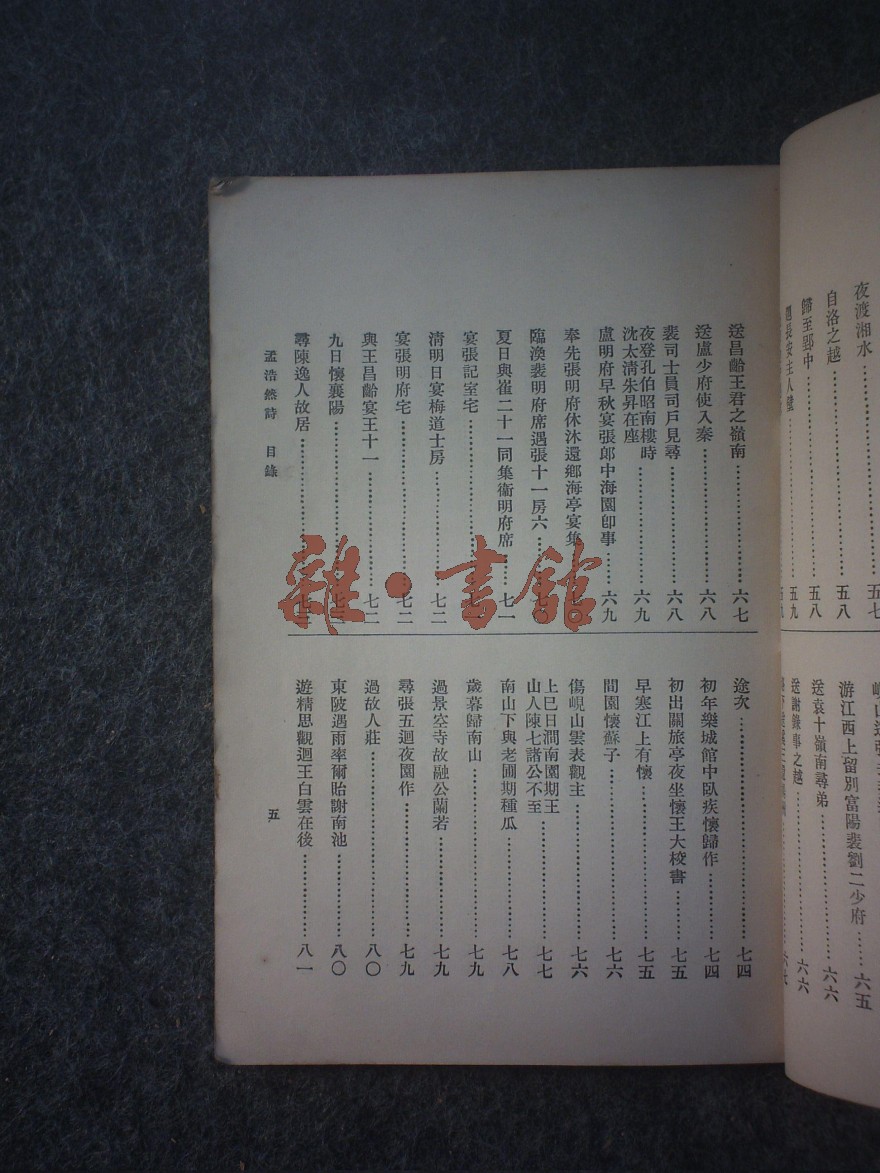 夜渡湘水……五七
自洛之越……五八
歸至郢中……五八
題長安主人壁……五九
游江西上留別富陽裴劉二少府……六五
送袁十嶺南尋弟……六六
送謝錄事之越……六六
送昌齡王君之嶺南……六七
送盧少府使入秦……六八
裴司士員司戶見尋……六八
夜登孔伯昭南樓時
沈太清朱昇在座……六九
盧明府早秋宴張郎中海園卽事……六九
奉先張明府休沐還鄉海亭宴集
臨渙裴明府席遇張十一房六
夏日與崔二十一同集衞明府席……七一
宴張記室宅
清明日宴梅道士房……七二
宴張明府宅……七二
與王昌齡宴王十一……七二
九日懷襄陽
尋陳逸人故居
途次……七四
初年樂城館中臥疾懷歸作……七四
初出關旅亭夜坐懷王大校書……七五
早寒江上有懷……七五
間園懷蘇子……七六
傷峴山雲表觀主……七六
上巳日澗南園期王
山人陳七諸公不至……七七
南山下與老圃期種瓜……七八
歲暮歸南山……七九
過景空寺故融公蘭若……七九
尋張五迴夜園作……七九
過故人莊……八〇
東陂遇雨率爾貽謝南池……八〇
遊精思觀迴王白雲在後……八一
孟浩然詩 目錄
五
雜·書館